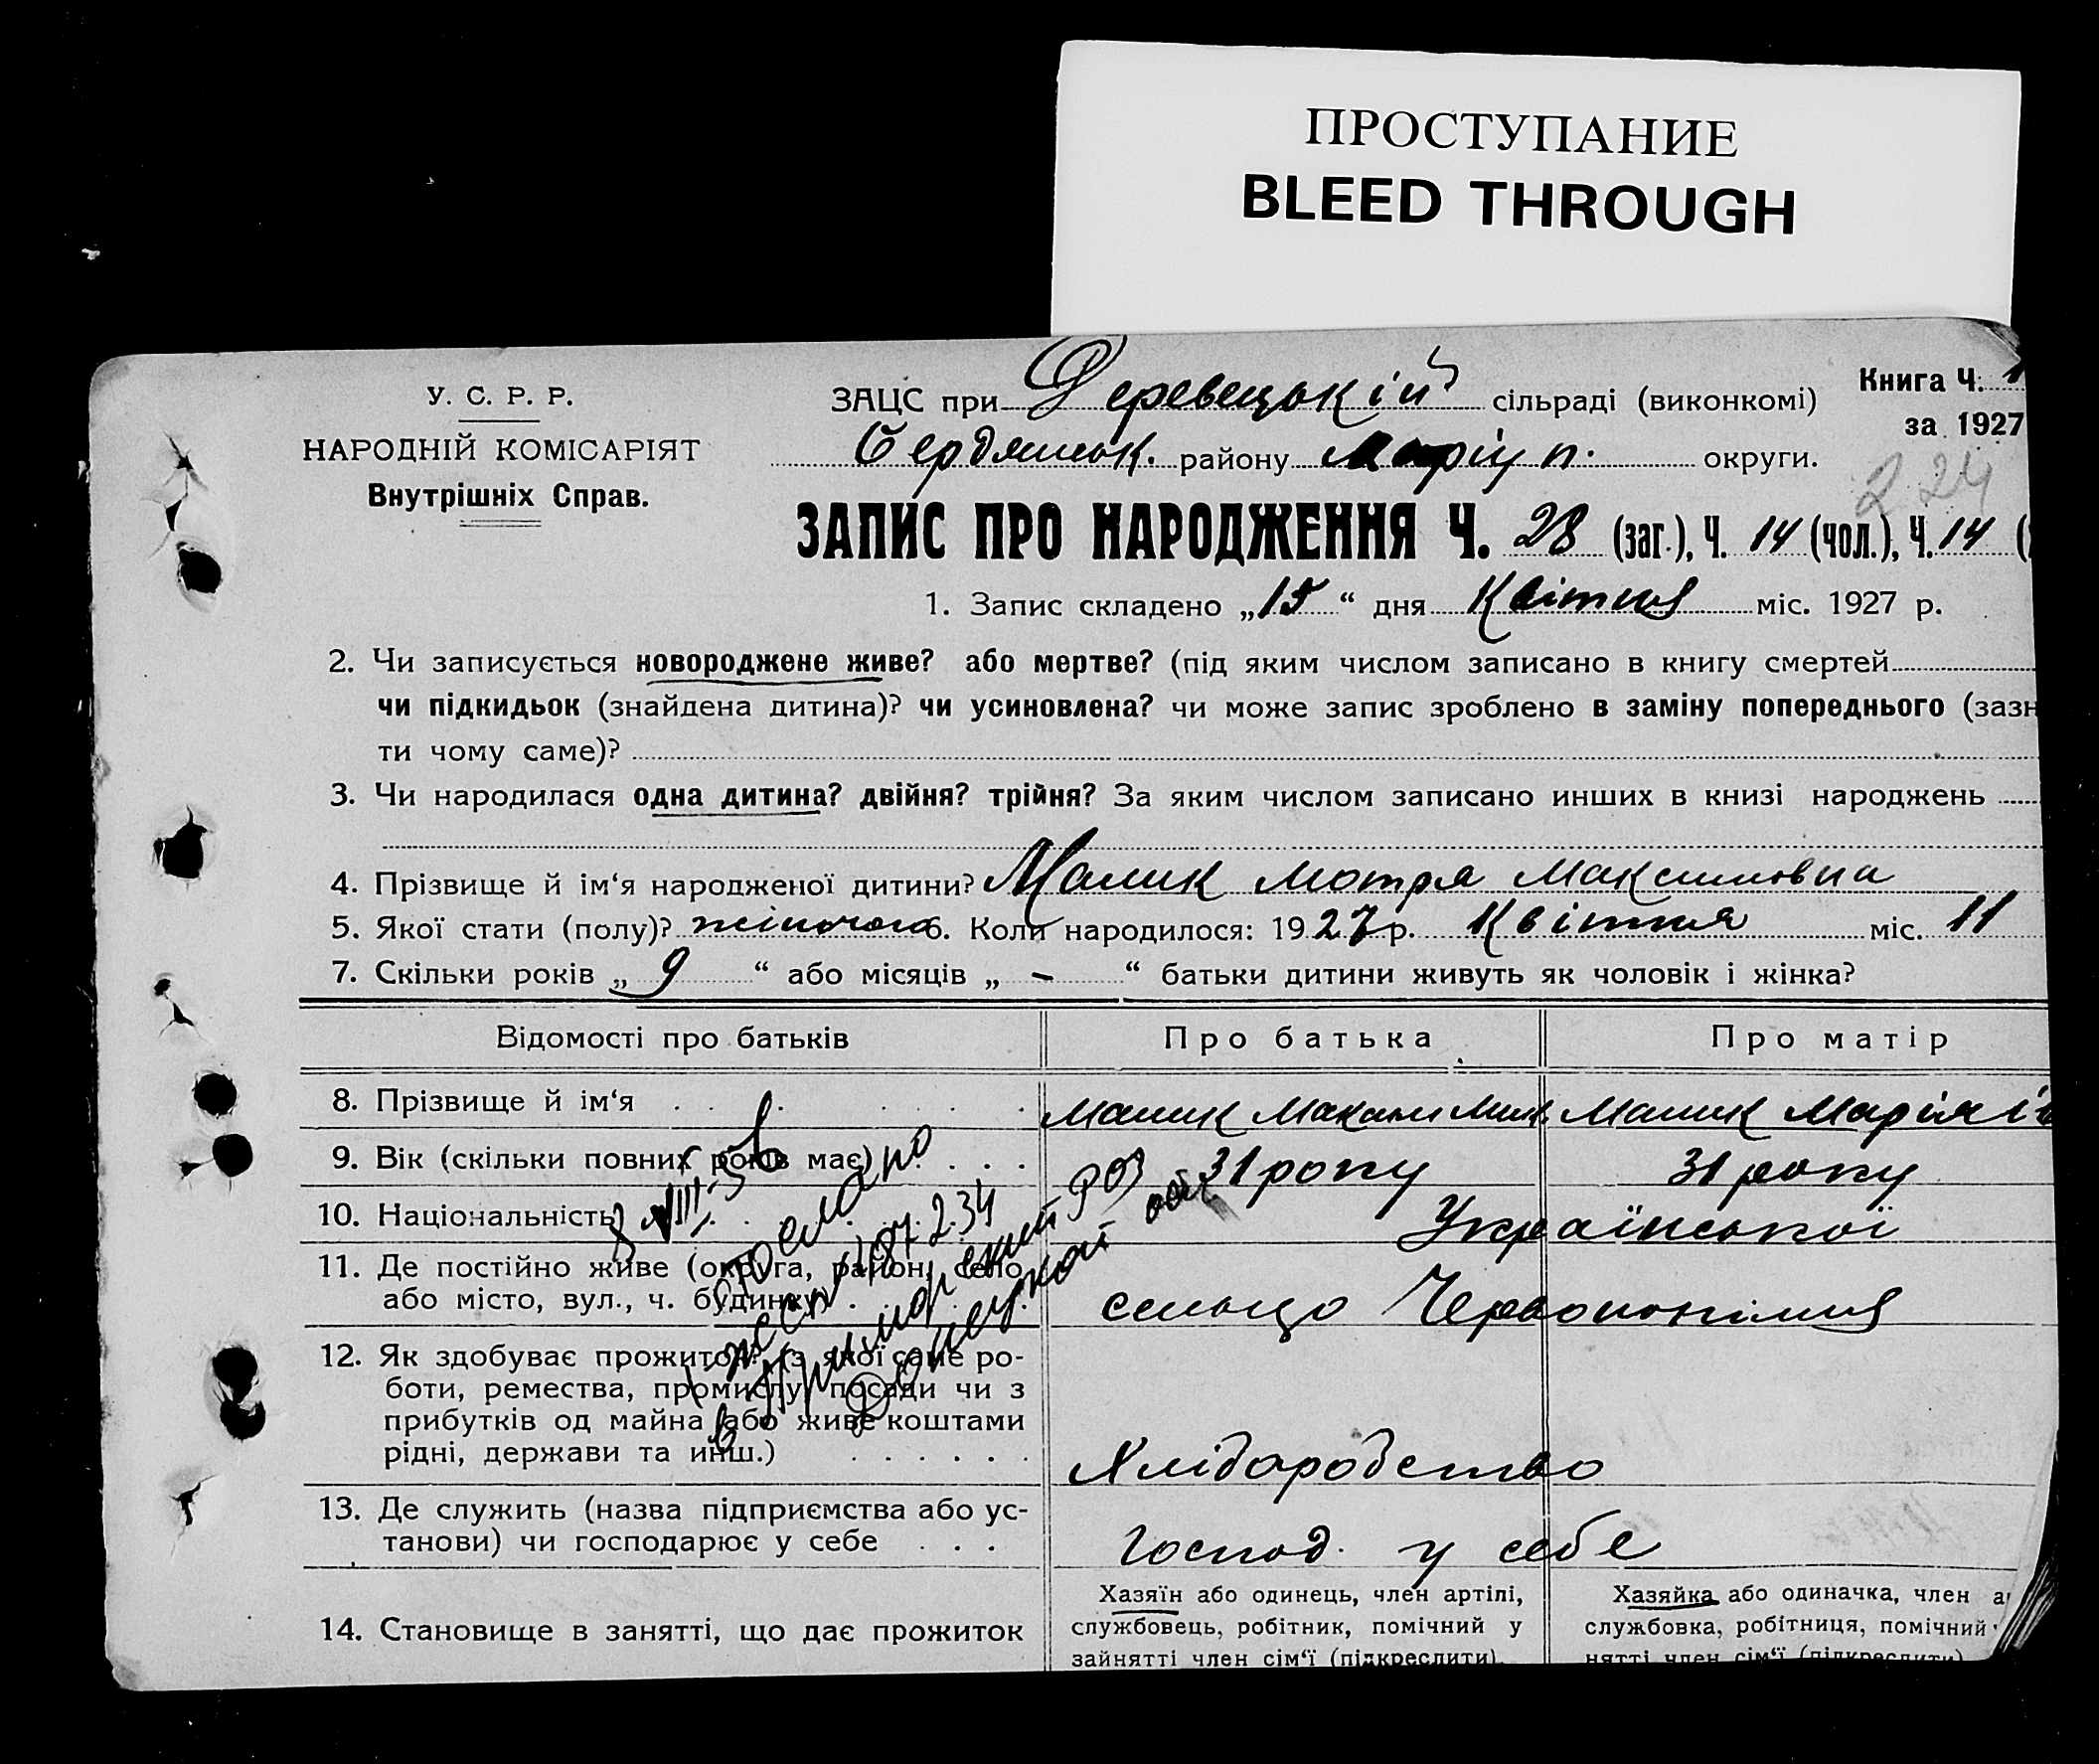 ПРОСТУПАНИЕ
BLEED THROUGH
У. С. Р. Р.
НАРОДНІЙ КОМІСАРІЯТ
Внутрішніх Справ.
ЗАЦС при Деревецькій сільраді (виконкомі)
Книга Ч. 1
за 1927
Бердянськ. району Маріуп. округи.
224
ЗАПИС ПРО НАРОДЖЕННЯ Ч. 28 (заг.), Ч. 14 (чол.), Ч. 14 (
1. Запис складено „15“ дня Квітня міс. 1927 р.
2. Чи записується новороджене живе? або мертве? (під яким числом записано в книгу смертей
чи підкидьок (знайдена дитина)? чи усиновлена? чи може запис зроблено в заміну попереднього (зазн
ти чому саме)?
3. Чи народилася одна дитина? двійня? трійня? За яким числом записано инших в книзі народжень
4. Прізвище й ім‘я народженої дитини? Малик Мотря Максимовна
5. Якої стати (полу)? жіночого 6. Коли народилося: 1927 р. Квітня міс. 11
7. Скільки років „ 9 “ або місяців „ - “ батьки дитини живуть як чоловік і жінка?
Відомості про батьків
Про батька
Про матір
8. Прізвище й ім‘я
Малик Максим Мик.
Малик Марія
9. Вік (скільки повних років має)
31 року
31 року
10. Національність
Української
11. Де постійно живе (округа, район, село
або місто, вул., ч. будинку)
сельцо
12. Як здобуває прожиток? (з якої саме ро-
боти, ремества, промислу, посади чи з
прибутків од майна або живе коштами
рідні, держави та инш.)
Хліборобство
13. Де служить (назва підприємства або ус-
танови) чи господарює у себе
Господ. у себе
14. Становище в занятті, що дає прожиток
Хазяїн або одинець, член артілі,
службовець, робітник, помічний у
зайнятті член сім‘ї (підкреслити).
Хазяйка або одиначка, член а
службовка, робітниця, помічний
нятті член сім‘ї (підкреслити)
8 VIII-56
послано
в Приморский РОЗ
Донецкой обл